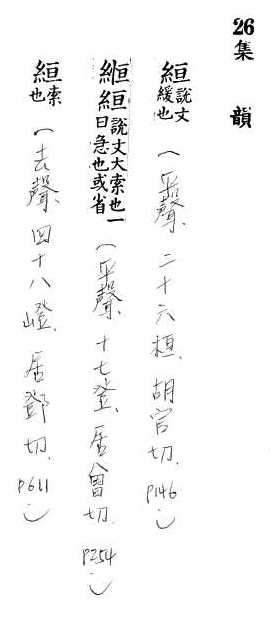 26集 韻
絙說文緩也(平聲.二十六桓.胡官切.P146)
緪絙說文大索也一曰急也或省(平聲.十七登.居曾切.P254)
絙索也(去聲.四十八嶝.居鄧切.P611)